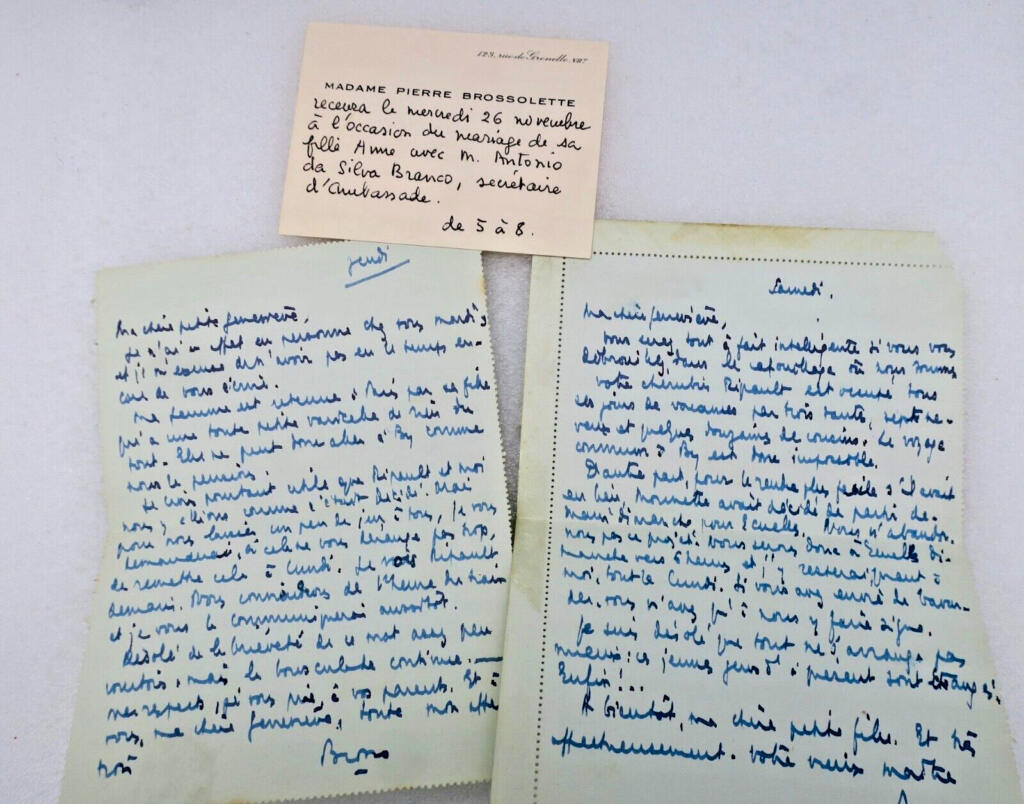 123, rue de Grenelle. VIIe
MADAME PIERRE BROSSOLETTE
recevra le mercredi 26 novembre
à l'occasion du mariage de sa
fille Anne avec M. Antonio
da Silva Branco, secrétaire
d'Ambassade.
de 5 à 8.
jeudi
Ma chère petite Geneviève,
Je n'ai en effet personne chez vous mardi
et je m'excuse de n'avoir pas eu le temps en-
core de vous écrire.
Ma femme est retenue à Paris par sa fille
qui a une toute petite varicelle de rien du
tout. Elle ne peut donc aller à By comme
nous le pensions.
Je crois pourtant utile que Ripault et moi
nous y allions comme c'était décidé. Mais
pour nous laisser un peu de jeu à tous, je vous
demanderai, si cela ne vous dérange pas trop,
de remettre cela à lundi. Je vois Ripault
demain. Nous conviendrons de l'heure du train
et je vous la communiquerai aussitôt.
Désolé de la brièveté de ce mot assez peu
courtois, mais la bousculade continue.
mes respects, je vous prie, à vos parents. Et à
vous, ma chère Geneviève, toute mon affec
tion
Samedi.
Ma chère Geneviève,
Vous serez tout à fait intelligente si vous vous
débrouillez dans le cafouillage où nous sommes
votre chérubin Ripault est occupé tous
ses jours de vacances par trois tantes, sept ne-
veux et quelques douzaines de cousins. Le voyage
commun à By est donc impossible.
D'autre part, pour le rendre plus facile s'il avait
eu lieu, Mounette avait décidé de partir de-
main dimanche pour Ecuelles. Nous n'abandon-
nons pas ce projet. Nous serons donc à Ecuelles di-
manche vers 6 heures et j'y resterai, quant à
moi, tout le lundi. Si vous avez envie de bavar-
der, vous n'avez qu'à nous y faire signe.
Je suis désolé que tout ne s'arrange pas
mieux : ces jeunes gens d'à présent sont étranges.
Enfin !...
A bientôt, ma chère petite fille. Et très
affectueusement. Votre vieux maître